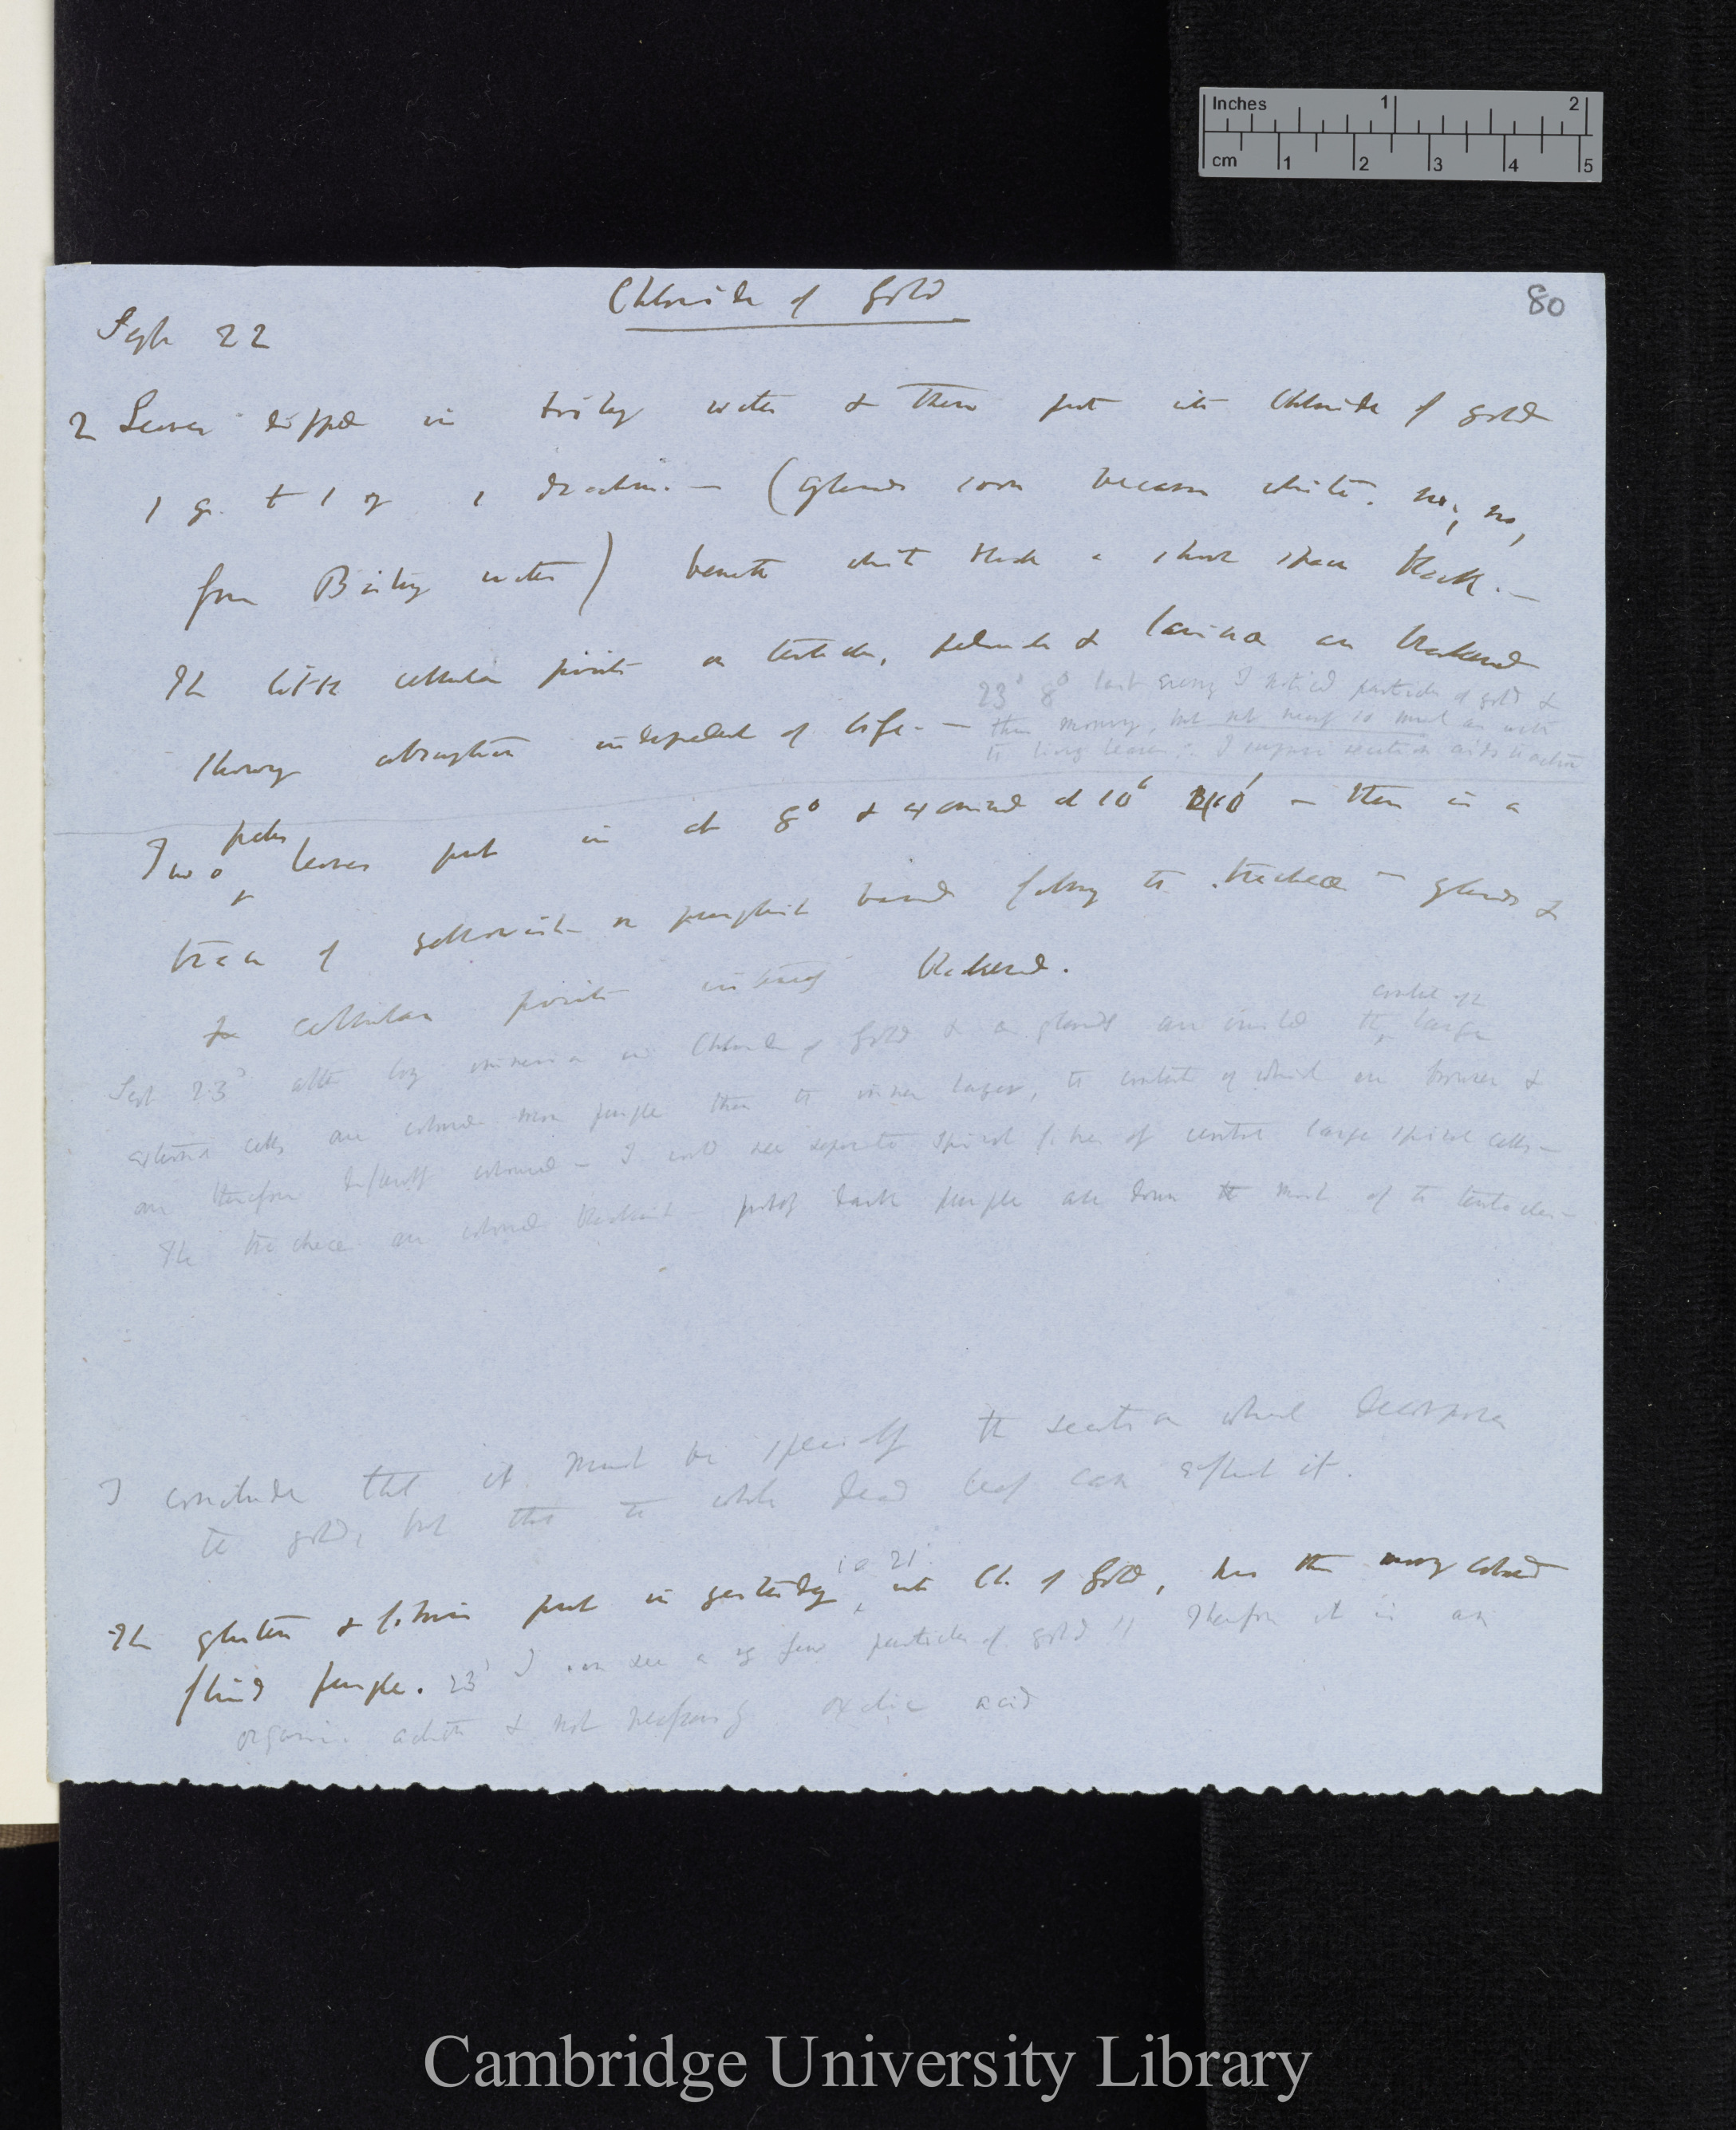 Inches 1 2
cm 1 2 3 4 5
80
Chloride of Gold
Sept 22
2 Leaves dipped in boiling water & then put into Chloride of gold
1 gr. to 1 oz (glands soon became white. no, no,
from Boiling water) beneath a short space black.—
The little cellular points on tentacles, pedicels & lamina are blackened
showing absorption independent of life.—
23d 8o last evening I noticed particles of gold &
this morning, but not nearly so much as with
the living leaves. I suppose secretion aids reaction
Two pale leaves put in at 8o & examined at 10o — there is a
trace of yellowish or purplish band following the tracheæ — glands &
cellular points intensely blackened.
Sept 23d after long immersion in Chloride of Gold & as glands are the contents of large
external cells are coloured more purple than the inner layer, the contents of which are browner &
are therefore differently coloured — I could see separate spiral fibres of central large spiral cells —
The tracheæ are coloured blackish — dark purple are down the most of the tentacles —
I conclude that it must be specially the secretion which decomposes
the gold, but that the whole dead leaf can effect it.
The gluten & fibrin put in yesterday ie 21 into Ch. of Gold, has this morng coloured
fluid purple. 23d I can see a vy few particles of gold!! Therefore it is an
organic action & not necessarily oxalic acid
Cambridge University Library